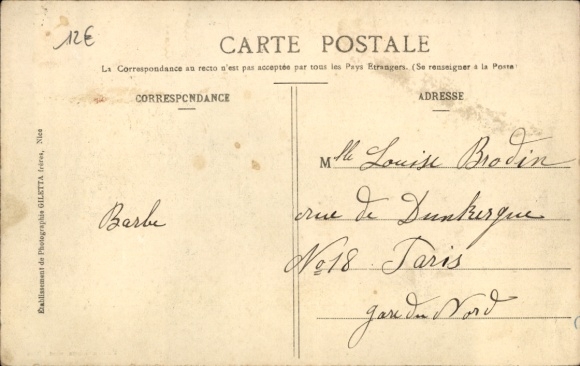 12€
CARTE POSTALE
La Correspondance au recto n'est pas acceptée par tous les Pays Etrangers. (Se renseigner à la Poste
CORRESPONDANCE
ADRESSE
Établissement de Photographie GILETTA frères, Nice
Barbe
Mlle Louise Brodin
rue de Dunkerque
No 18 Paris
gare du Nord